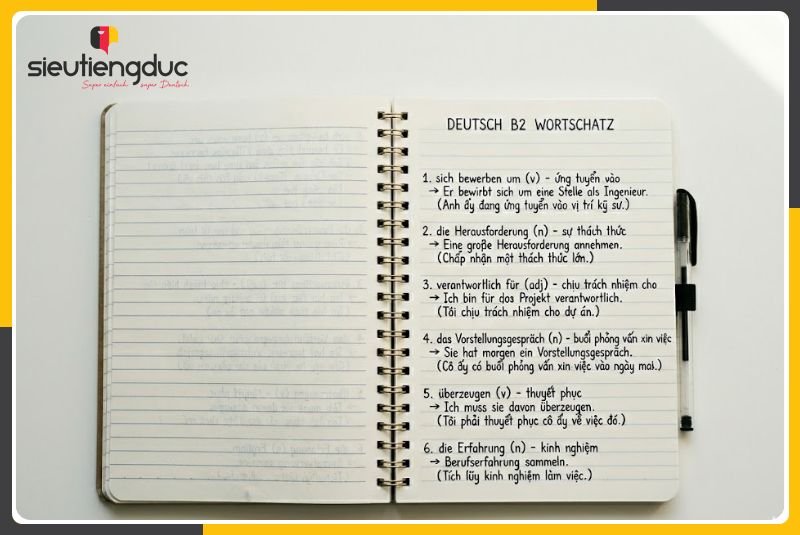 sieutiengduc
Super einfach super Deutsch
DEUTSCH B2 WORTSCHATZ
1. sich bewerben um (v) - ứng tuyển vào
→ Er bewirbt sich um eine Stelle als Ingenieur.
(Anh ấy đang ứng tuyển vào vị trí kỹ sư.)
2. die Herausforderung (n) - sự thách thức
→ Eine große Herausforderung annehmen.
(Chấp nhận một thách thức lớn.)
3. verantwortlich für (adj) - chịu trách nhiệm cho
→ Ich bin für dos Projekt verantwortlich.
(Tôi chịu trách nhiệm cho dự án.)
4. das Vorstellungsgespräch (n) - buổi phỏng vấn xin việc
→ Sie hat morgen ein Vorstellungsgespräch.
(Cô ấy có buổi phỏng vấn xin việc vào ngày mai.)
5. überzeugen (v) - thuyết phục
→ Ich muss sie davon überzeugen.
(Tôi phải thuyết phục cô ấy về việc đó.)
6. die Erfahrung (n) - kinh nghiệm
→ Berufserfahrung sammeln.
(Tích lũy kinh nghiệm làm việc.)